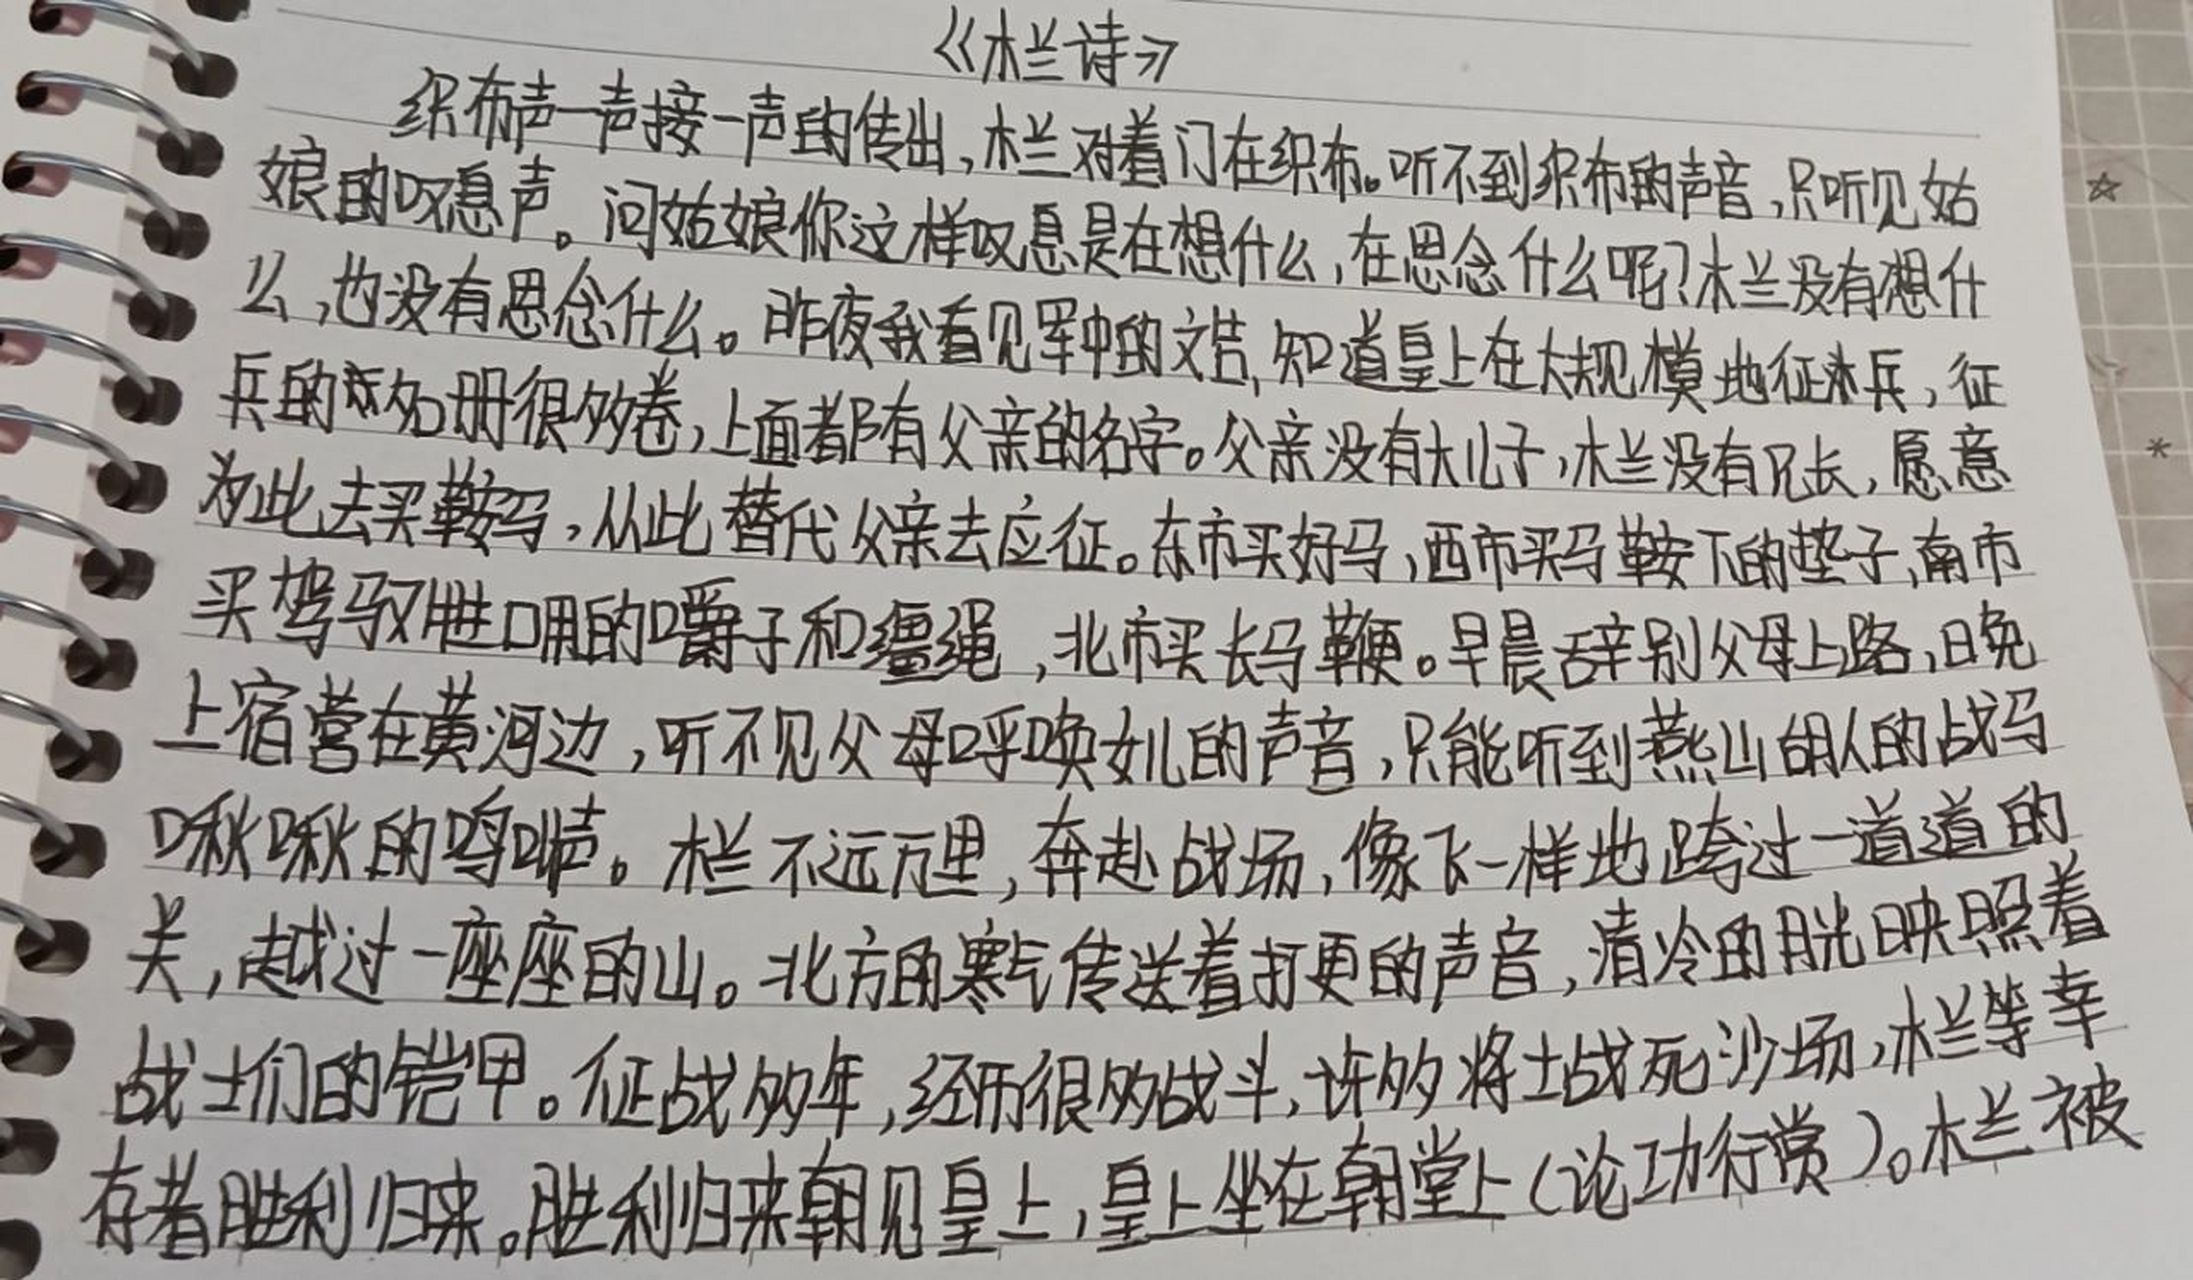 《木兰诗》
织布声一声接一声的传出,木兰对着门在织布。听不到织布的声音,只听见姑
娘的叹息声。问姑娘你这样叹息是在想什么,在思念什么呢?木兰没有想什
么,也没有思念什么。昨夜我看见军中的文告,知道皇上在大规模地征兵,征
兵的名册很多卷,上面都有父亲的名字。父亲没有大儿子,木兰没有兄长,愿意
为此去买鞍马,从此替代父亲去应征。东市买好马,西市买马鞍下的垫子,南市
买驾驭牲口用的嚼子和缰绳,北市买长马鞭。早晨辞别父母上路,晚
上宿营在黄河边,听不见父母呼唤女儿的声音,只能听到燕山胡人的战马
啾啾的鸣叫声。木兰不远万里,奔赴战场,像飞一样地跨过一道道的
关,越过一座座的山。北方的寒气传送着打更的声音,清冷的月光映照着
战士们的铠甲。征战多年,经历很多战斗,许多将士战死沙场,木兰等幸
存者胜利归来。胜利归来朝见皇上,皇上坐在朝堂上(论功行赏)。木兰被